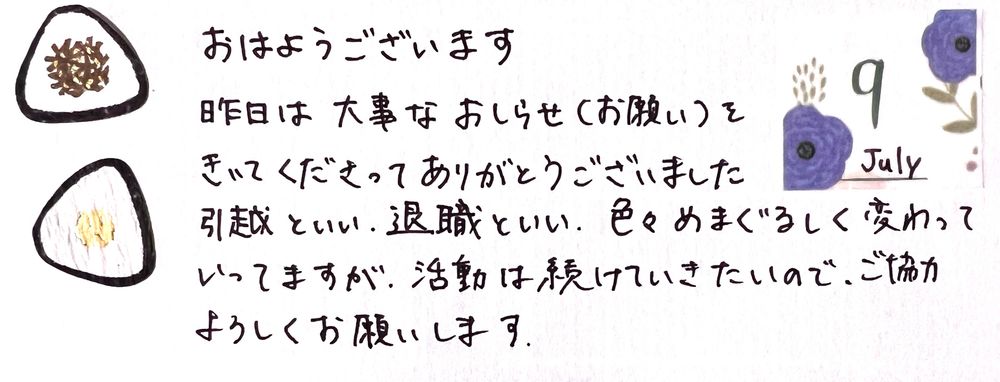 おはようございます
昨日は 大事な おしらせ(お願い)を
きいてくださってありがとうございました
引越といい.退職といい. 色々めまぐるしく変わって
いってますが. 活動は続けていきたいので、ご協力
よろしくお願いします.
9
July